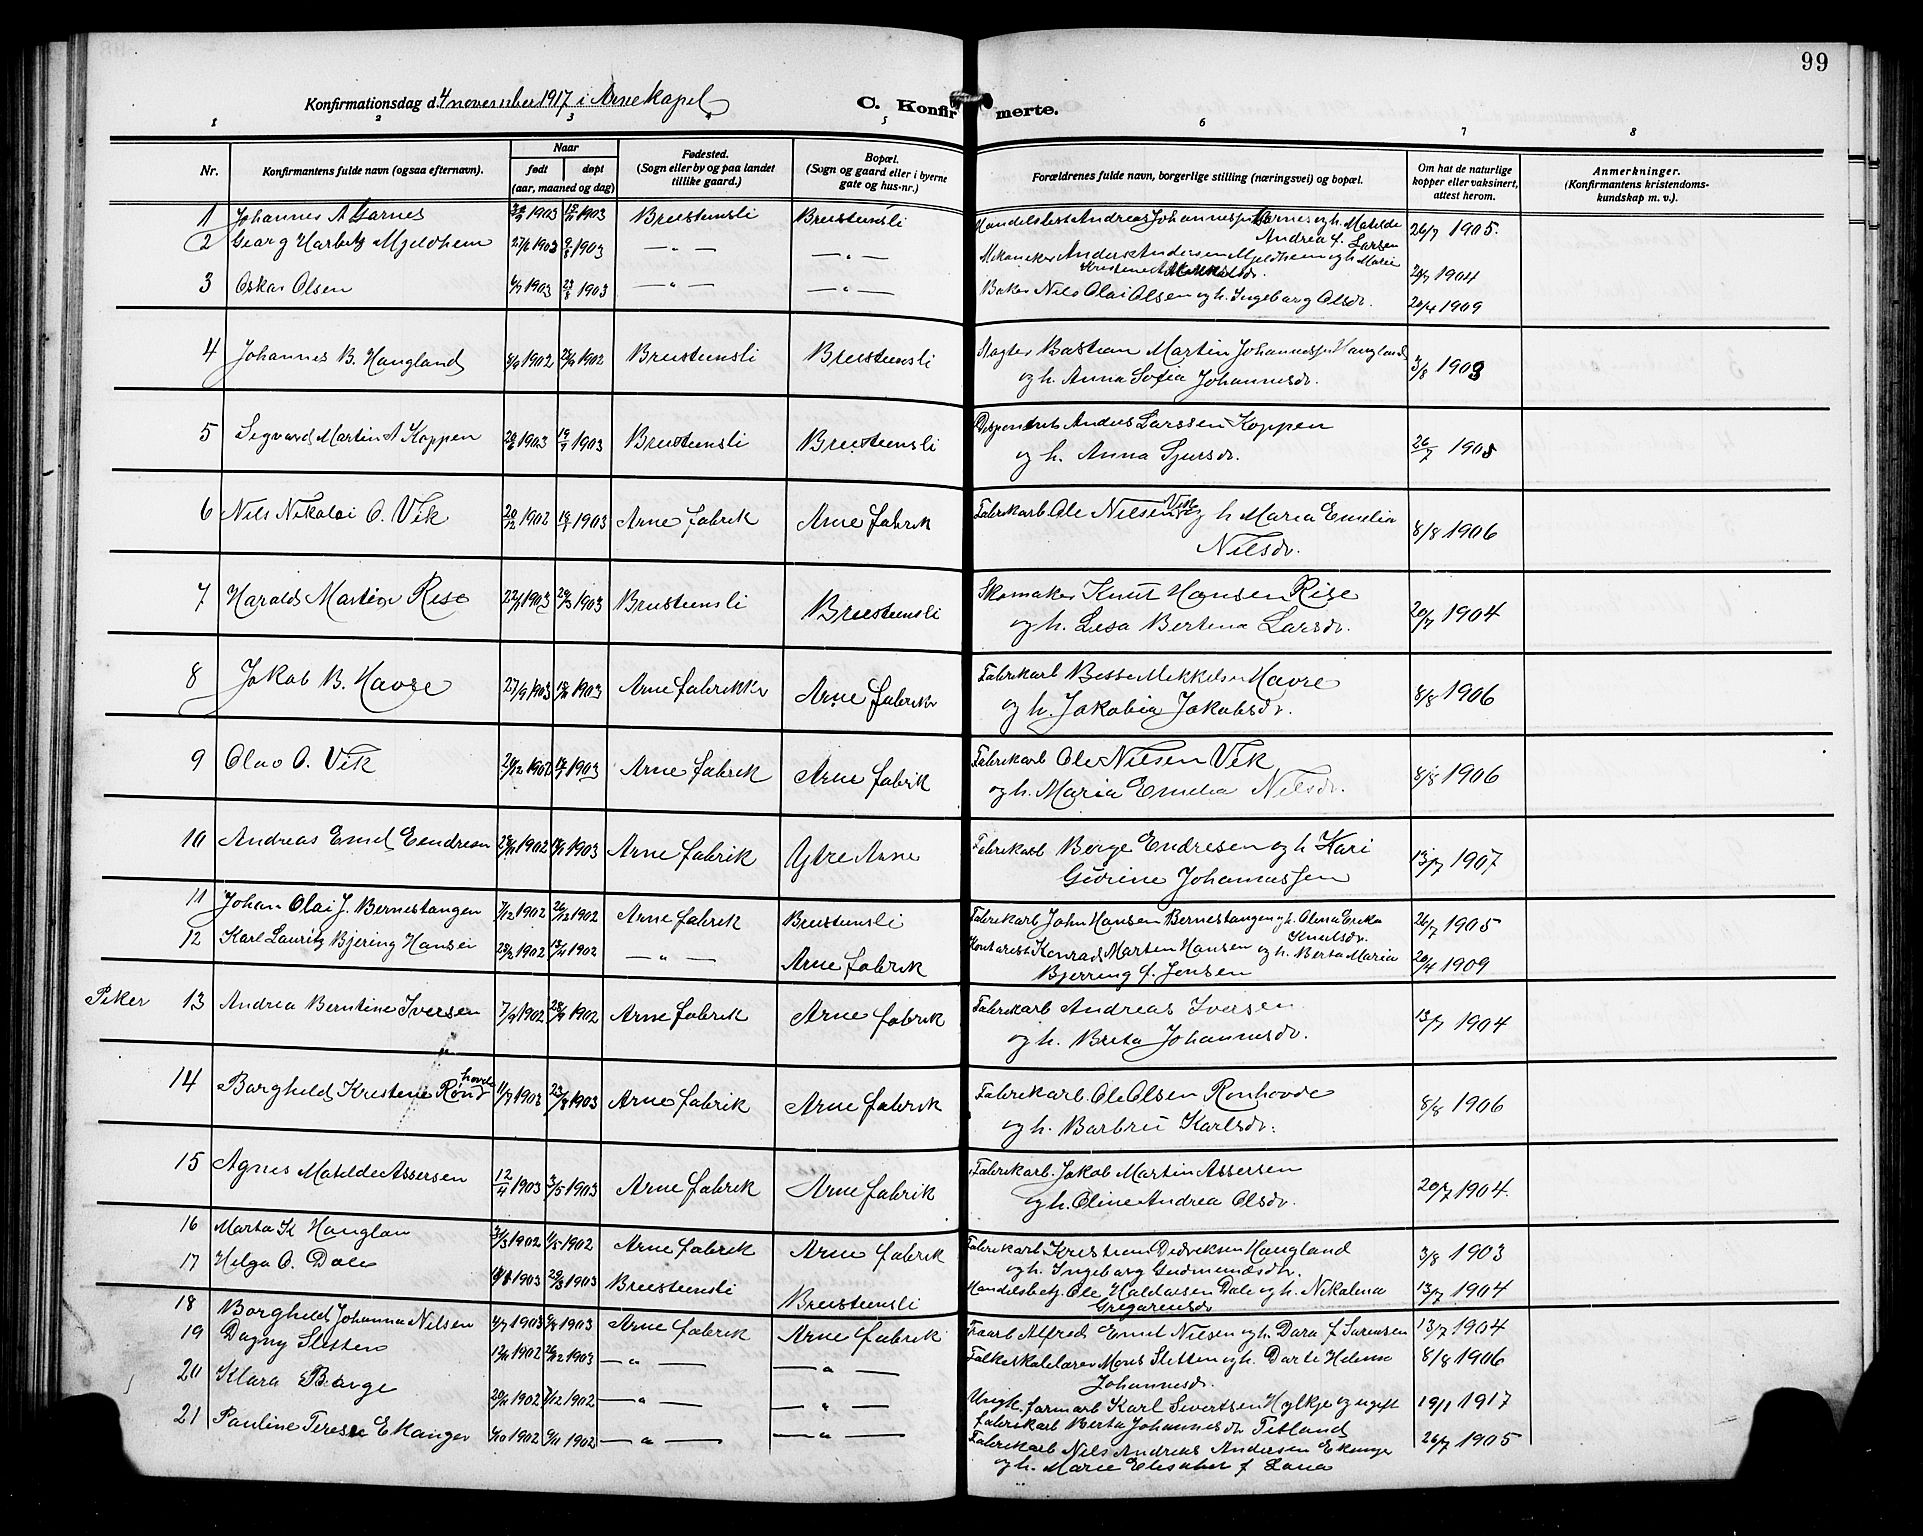 99
Konfirmationsdag d. 4 november 1917 i Arne Kapel
C. Konfirmerte.
1 2 3 4 5 6 7 8
Nr.
Konfirmantens fulde navn (ogsaa efternavn).
Naar
født døpt
(aar, maaned og dag)
Fødested.
(Sogn eller by og paa landet
tillike gaard.)
Bopæl.
(Sogn og gaard eller i byerne
gate og hus-nr.)
Forældrenes fulde navn, borgerlige stilling (næringsvei) og bopæl.
Om hat de naturlige
kopper eller vaksinert,
attest herom.
Anmerkninger.
(Konfirmantens kristendoms-
kundskap m. v.).
1 Johannes A 1903 1903 Breistensli Breistensli Andreas Johannessen og h. Matilde 26/7 1905.
Andrea f. Larsen
2 Georg Mjeldheim 1903 1903 — „ — — „ — Mekaniker Anders Andersen Mjeldheim og h. Marie 1904
Kristine
3 Oskar Olsen 1903 23/8 1903 — „ — — „ — Baker Nils Olai Olsen og h. Ingeborg Olsdr. 20/4 1909
4 Johannes B. Haugland 1902 1902 Breistensli Breistensli Bastian Martin Johannessen Haugland 3/8 1903
og h. Anna Sofia Johannesdr.
5 Sigvard Martin A Koppen 1903 19/7 1903 Breistensli Breistensli Anders Larssen Koppen 26/7 1905
og h. Anna Sjursdr.
6 Nils Nikolai O. Vik 20/12 1902 1903 Arne fabrik Arne fabrik Fabrikarb Ole Nilsen Vik og h Maria Emilia 8/8 1906
Nilsdr.
7 Harald Martin Rise 1903 29/3 1903 Breistensli Breistensli Skomaker Knut Hansen Rise 20/7 1904
og h. Lisa Bertina Larsdr.
8 Jakob B. Havre 27/9 1903 1903 Arne fabrikker Arne fabrikk Fabrikarb Mikkelsen Havre 8/8 1906
og h. Jakobia Jakobsdr.
9 Olav O. Vik 20/12 1902 1903 Arne fabrik Arne fabrik Fabrikarb Ole Nilsen Vik 8/8 1906
og h. Maria Emilia Nilsdr.
10 Andreas Emil Eendresen 1902 1903 Arne fabrik Ytre Arne Fabrikarb Børge Endresen og h Kari 13/7 1907
Gurine Johannessen
11 Johan Olai J. Bernestangen 7/12 1902 26/12 1902 Arne fabrik Breistensli Fabrikarb John Hansen Bernestangen og h. Olina Erika 26/7 1905
Knutsdr.
12 Karl Lauritz Bjering Hansen 1902 1902 — „ — Arne fabrik Kontorist Konrad Marten Hansen og h. Berta Maria 20/4 1909
Bjerring f. Jensen
Piker 13 Andrea Berntine Iversen 7/9 1902 28/9 1902 Arne fabrik Arne fabrik Fabrikarb Andreas Iversen 13/7 1904
og h. Brita Johannesdr.
14 Borghild Kristine Rønhovde 11/7 1903 23/8 1903 Arne fabrik Arne fabrik Fabrikarb. Ole Olsen Rønhovde 8/8 1906
og h. Barbru Karlsdr.
15 Agnes Matilde Assersen 12/4 1903 3/5 1903 Arne fabrik Arne fabrik Fabrikarb. Jakob Martin Assersen 20/7 1904.
og h. Oline Andrea Olsdr.
16 Marta K Haugland 31/3 1902 1/5 1902 Arne fabrik Arne fabrik Fabrikarb Kristian Didriksen Haugland 3/8 1903
og h. Ingeborg Gudmundsdr.
17 Helga O. Dale 1903 29/3 1903 Breistensli Breistensli Handelsbetj. Ole Haldorsen Dale og h. Nikolina 13/7 1904
Gregoriusdr
18 Borghild Johanna Nilsen 1903 1903 Arne fabrik Arne fabrik Alfred Emil Nilsen og h. Dora f. Sørensen 13/7 1904
19 Dagny Sletten 1902 1903 — „ — — „ — Folkeskolelærer Mons Sletten og h. Dorte Helene 8/8 1906
Johannesdr.
20 Klara Borge 20/11 1902 1902 — „ — — „ — Ungk. Karl Sivertsen Hylkje og ugift 19/1 1917
fabrikarb Berta Johannesdr Titland
21 Pauline Terese Ekanger 1902 1902 — „ — — „ — Fabrikarb Nils Andreas Andersen Ekanger 26/7 1905
og h. Marie Elisabet f